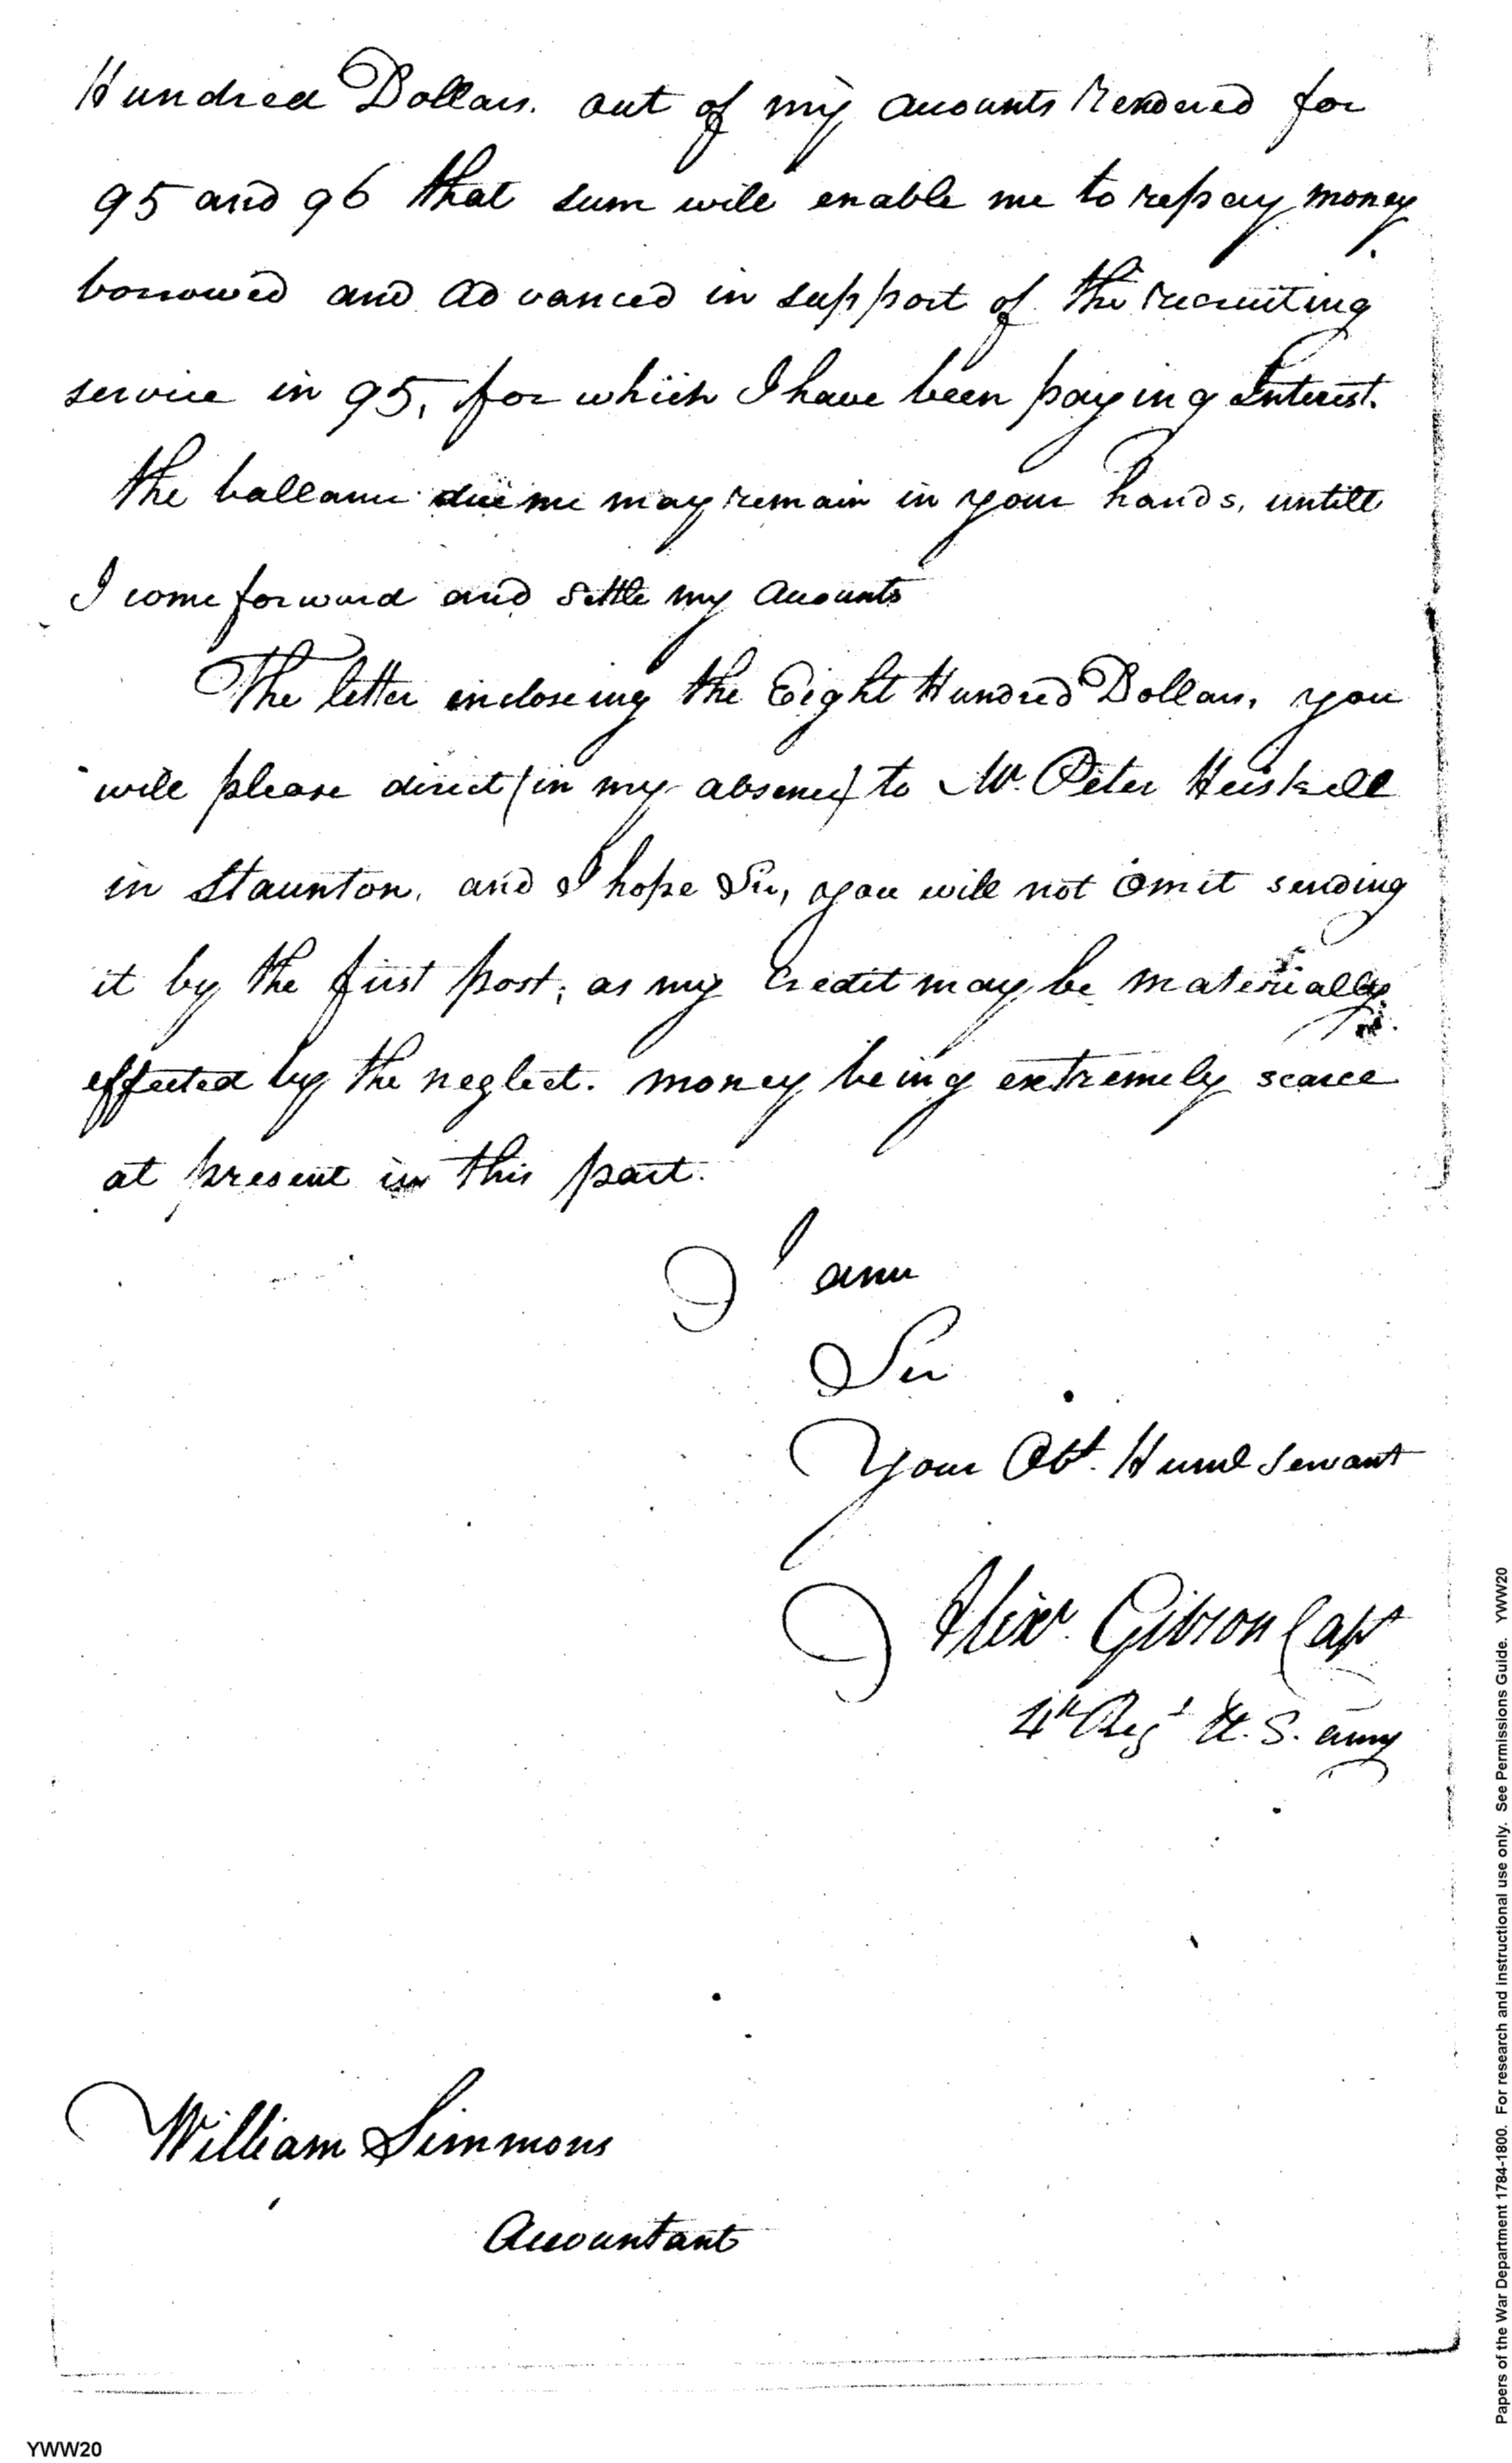 Hundred Dollars. out of my accounts Rendered for
95 and 96 that sum will enable me to repay money
borrowed and advanced in support of the recruiting
service in 95, for which I have been paying Interest.
the ballance due me may remain in your hands, untill
I come forward and settle my accounts
The letter incloseing the Eight Hundred Dollars, you
will please direct (in my absence) to Mr. Peter Heiskell
in Staunton, and I hope Sir, you will not omit sending
it by the first post; as my credit may be materially
effected by the neglect. money being extremely scarce
at present in this part.
I am
Sir
Your Obt. Huml servant
Alexr. Gibson Capt
4th Regt U.S. army
William Simmons
Accountant
Papers of the War Department 1784-1800. For research and instructional use only. See Permissions Guide. YWW20
YWW20